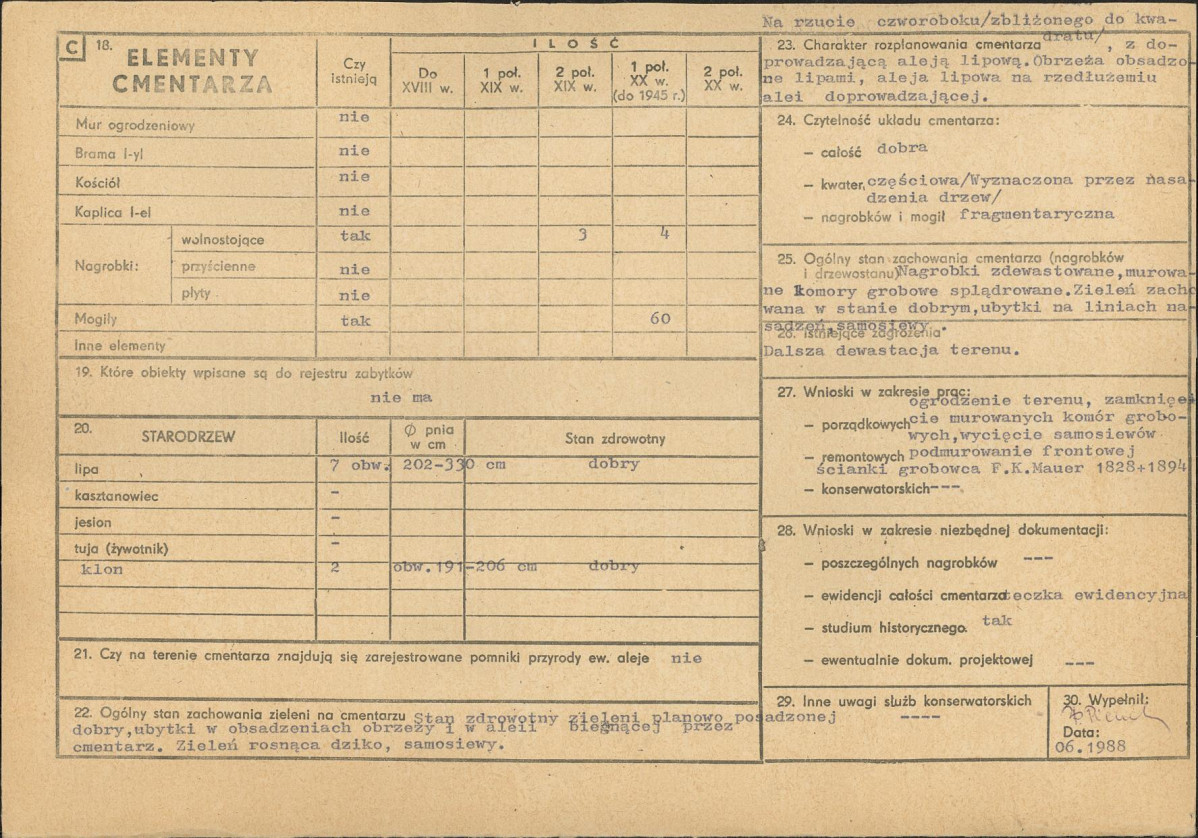 C 18. ELEMENTY CMENTARZA
Czy istnieją
I L O Ś Ć
Do XVIII w.
1 poł. XIX w.
2 poł. XIX w.
1 poł. XX w. (do 1945 r.)
2 poł. XX w.
Mur ogrodzeniowy nie
Brama l-yl nie
Kościół nie
Kaplica l-el nie
Nagrobki:
wolnostojące tak 3 4
przyścienne nie
płyty nie
Mogiły tak 60
Inne elementy
19. Które obiekty wpisane są do rejestru zabytków
nie ma
20. STARODRZEW Ilość Ø pnia w cm Stan zdrowotny
lipa 7 obw. 202-330 cm dobry
kasztanowiec -
jesion -
tuja (żywotnik) -
klon 2 obw.191-206 cm dobry
21. Czy na terenie cmentarza znajdują się zarejestrowane pomniki przyrody ew. aleje nie
22. Ogólny stan zachowania zieleni na cmentarzu Stan zdrowotny zieleni planowo posadzonej
dobry,ubytki w obsadzeniach obrzeży i w aleii biegnącej przez
cmentarz. Zieleń rosnąca dziko, samosiewy.
Na rzucie czworoboku/zbliżonego do kwa-
dratu/
23. Charakter rozplanowania cmentarza , z do-
prowadzającą aleją lipową.Obrzeża obsadzo-
ne lipami, aleja lipowa na rzedłużemiu
alei doprowadzającej.
24. Czytelność układu cmentarza:
– całość dobra
– kwater, częściowa/Wyznaczona przez nasa-
dzenia drzew/
– nagrobków i mogił fragmentaryczna
25. Ogólny stan zachowania cmentarza (nagrobków
i drzewostanu) Nagrobki zdewastowane,murowa-
ne komory grobowe splądrowane.Zieleń zacho
wana w stanie dobrym,ubytki na liniach na-
sadzeń,samosiewy.
26. Istniejące zagrożenia
Dalsza dewastacja terenu.
27. Wnioski w zakresie prac:
ogrodzenie terenu, zamknięe
– porządkowych cie murowanych komór grobo-
wych,wycięcie samosiewów
– remontowych podmurowanie frontowej
ścianki grobowca F.K.Mauer 1828+1894
– konserwatorskich---
28. Wnioski w zakresie niezbędnej dokumentacji:
– poszczególnych nagrobków ---
– ewidencji całości cmentarza teczka ewidencyjna
– studium historycznego. tak
– ewentualnie dokum. projektowej ---
29. Inne uwagi służb konserwatorskich
----
30. Wypełnił:
Data:
06.1988